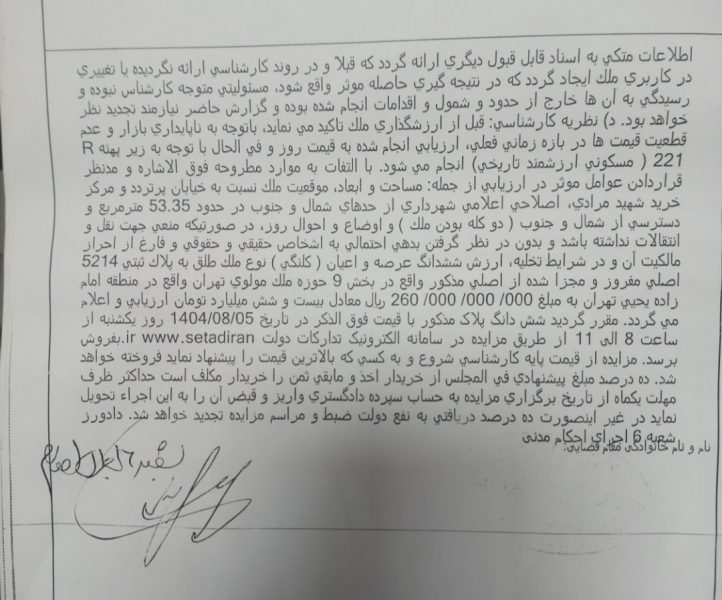 اطلاعات متكي به اسناد قابل قبول ديگري ارائه گردد كه قبلا و در روند كارشناسي ارائه نگرديده يا تغييري
در كاربري ملك ايجاد گردد كه در نتيجه گيري حاصله موثر واقع شود، مسئوليتي متوجه كارشناس نبوده و
رسيدگي به آن ها خارج از حدود و شمول و اقدامات انجام شده بوده و گزارش حاضر نيازمند تجديد نظر
خواهد بود. د) نظريه كارشناسي: قبل از ارزشگذاري ملك تاكيد مي نمايد، باتوجه به ناپايداري بازار و عدم
قطعيت قيمت ها در بازه زماني فعلي، ارزيابي انجام شده به قيمت روز و في الحال با توجه به زير پهنه R
221 ( مسكوني ارزشمند تاريخي) انجام مي شود. با التفات به موارد مطروحه فوق الاشاره و مدنظر
قراردادن عوامل موثر در ارزيابي از جمله: مساحت و ابعاد، موقعيت ملك نسبت به خيابان پرتردد و مركز
خريد شهيد مرادي، اصلاحي اعلامي شهرداري از حدهاي شمال و جنوب در حدود 53.35 مترمربع و
دسترسي از شمال و جنوب ( دو كله بودن ملك ) و اوضاع و احوال روز، در صورتيكه منعي جهت نقل و
انتقالات نداشته باشد و بدون در نظر گرفتن بدهي احتمالي به اشخاص حقيقي و حقوقي و فارغ از احراز
مالكيت آن و در شرايط تخليه، ارزش ششدانگ عرصه و اعيان ( كلنگي ) نوع ملك طلق به پلاك ثبتي 5214
اصلي مفروز و مجزا شده از اصلي مذكور واقع در بخش 9 حوزه ملك مولوي تهران واقع در منطقه امام
زاده يحيي تهران به مبلغ 000/ 000/ 000/ 260 ريال معادل بيست و شش ميليارد تومان ارزيابي و اعلام
مي گردد. مقرر گرديد شش دانگ پلاک مذكور با قيمت فوق الذكر در تاريخ 1404/08/05 روز يكشنبه از
ساعت 8 الی 11 از طريق مزايده در سامانه الكترونيک تداركات دولت www.setadiran.ir بفروش
برسد. مزايده از قيمت پايه كارشناسي شروع و به كسي كه بالاترين قيمت را پيشنهاد نمايد فروخته خواهد
شد. ده درصد مبلغ پيشنهادي في المجلس از خريدار اخذ و مابقي ثمن را خريدار مكلف است حداكثر ظرف
مهلت يكماه از تاريخ برگزاري مزايده به حساب سپرده دادگستري واريز و قبض آن را به اين اجراء تحويل
نمايد در غير اينصورت ده درصد دريافتي به نفع دولت ضبط و مراسم مزايده تجديد خواهد شد. دادورز
شعبه 6 اجرای احكام مدنی
نام و نام خانوادگی مقام قضایی: